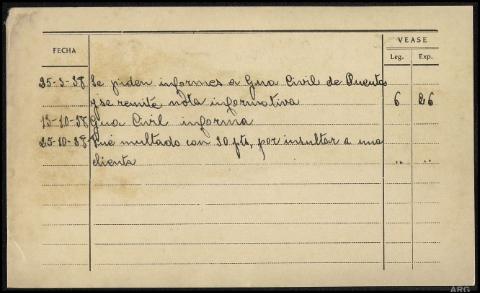 FECHA
VEASE
Leg. Exp.
25-3-38 Se piden informes a Gua Civil de Puentes
y se remité nota informativa 6 26
15-10-38 Gua Civil informa
25-10-38 Fué multado con 20 pts, por insultar a una
clienta " "
ARG